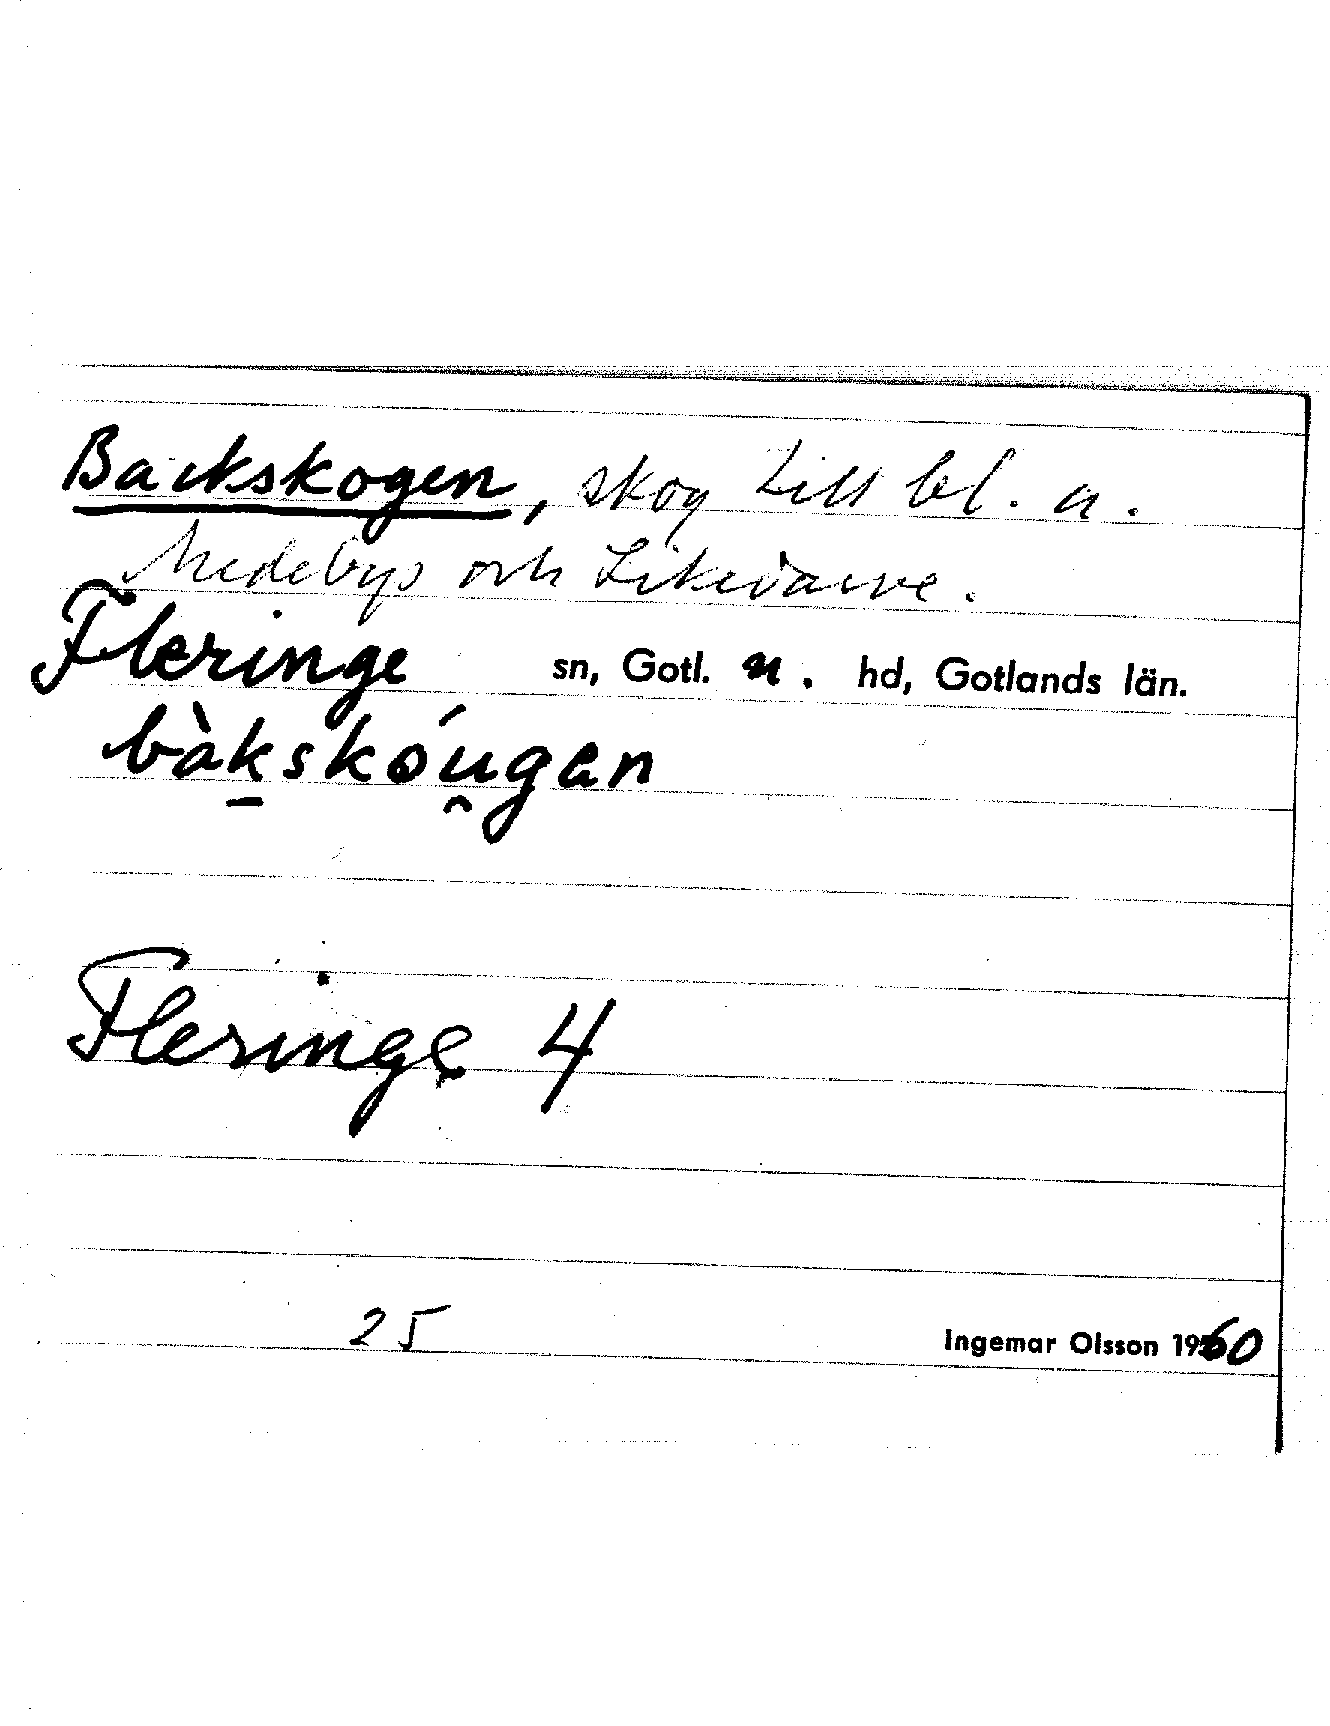 Backskogen, skog till bl. a.
Medebys och Likedarve.
Fleringe sn, Gotl. n. hd, Gotlands län.
bàk̠skóu̯gan
Fleringe 4
25
Ingemar Olsson 1960